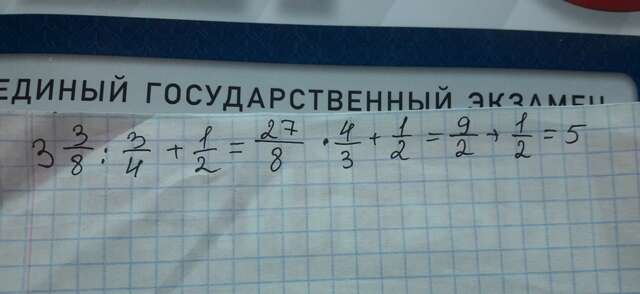 ЕДИНЫЙ ГОСУДАРСТВЕННЫЙ ЭКЗАМЕН
3 3/8 : 3/4 + 1/2 = 27/8 · 4/3 + 1/2 = 9/2 + 1/2 = 5